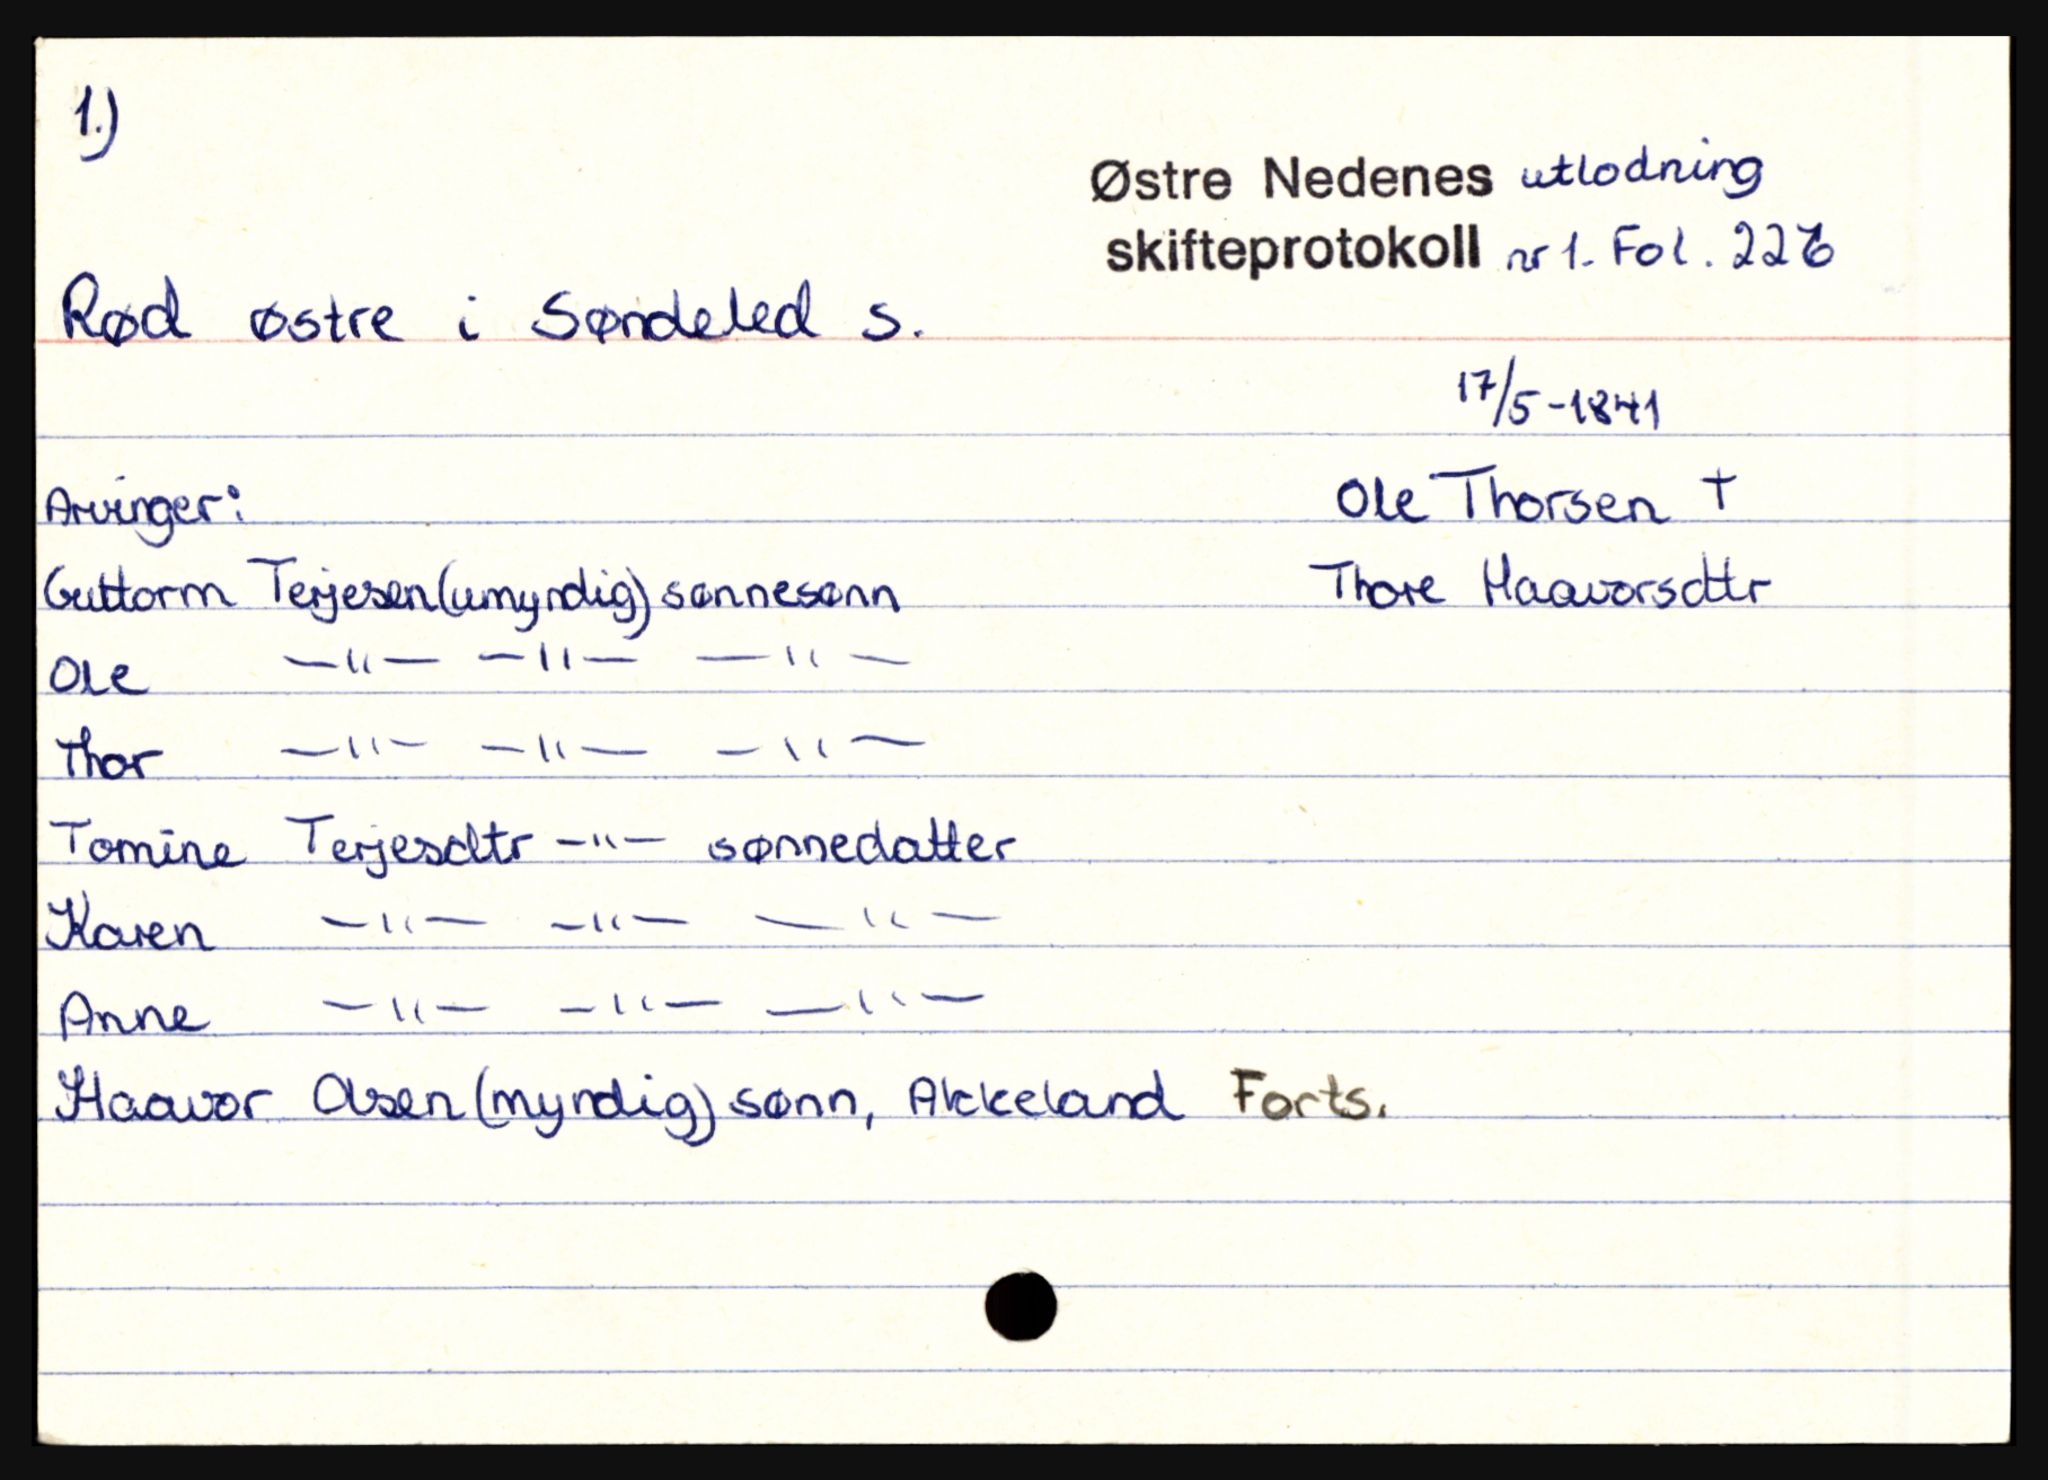 1.)
Østre Nedenes utlodning
skifteprotokoll nr 1. Fol. 226
Rød østre i Søndeled s.
17/5-1841
Arvinger:
Ole Thorsen †
Guttorm Terjesen (umyndig) sønnesønn
Thore Haavorsdtr
Ole —"— —"— —"—
Thor —"— —"— —"—
Tomine Terjesdtr —"— sønnedatter
Karen —"— —"— —"—
Anne —"— —"— —"—
Haavor Olsen (myndig) sønn, Akkeland Forts.